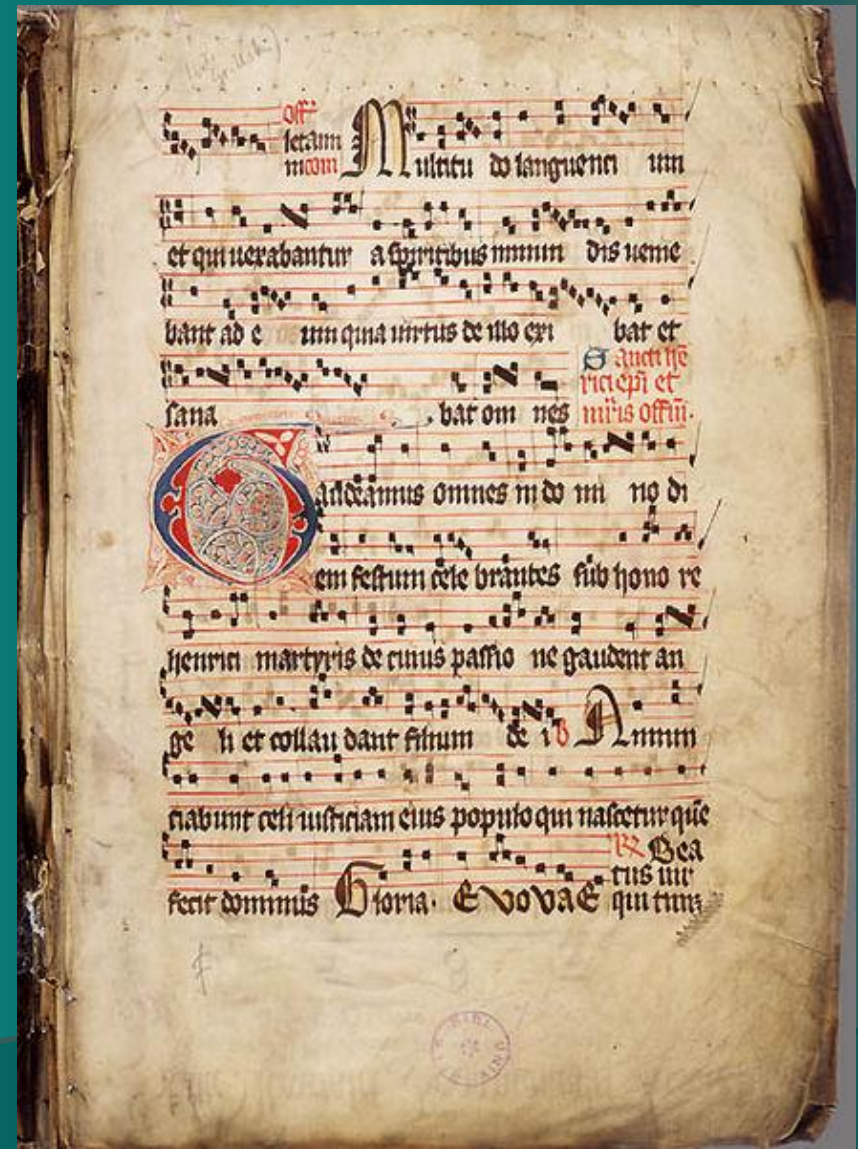 Off
letam
m com Multitu do languenti um
et qui uexabantur a spiritibus immun dis uenie
bant ad e um quia uirtus de illo exi bat et
sana bat om nes
Sancti he
rici epi et
mris offm.
Gaudeamus omnes in do mi no di
em festum cele brantes sub hono re
henrici martyris de cuius passio ne gaudent an
ge li et collau dant filium de i Annun
ciabunt celi iusticiam eius populo qui nascetur que
fecit dominus Gloria. EVOVAE
Bea
tus uir
qui tim